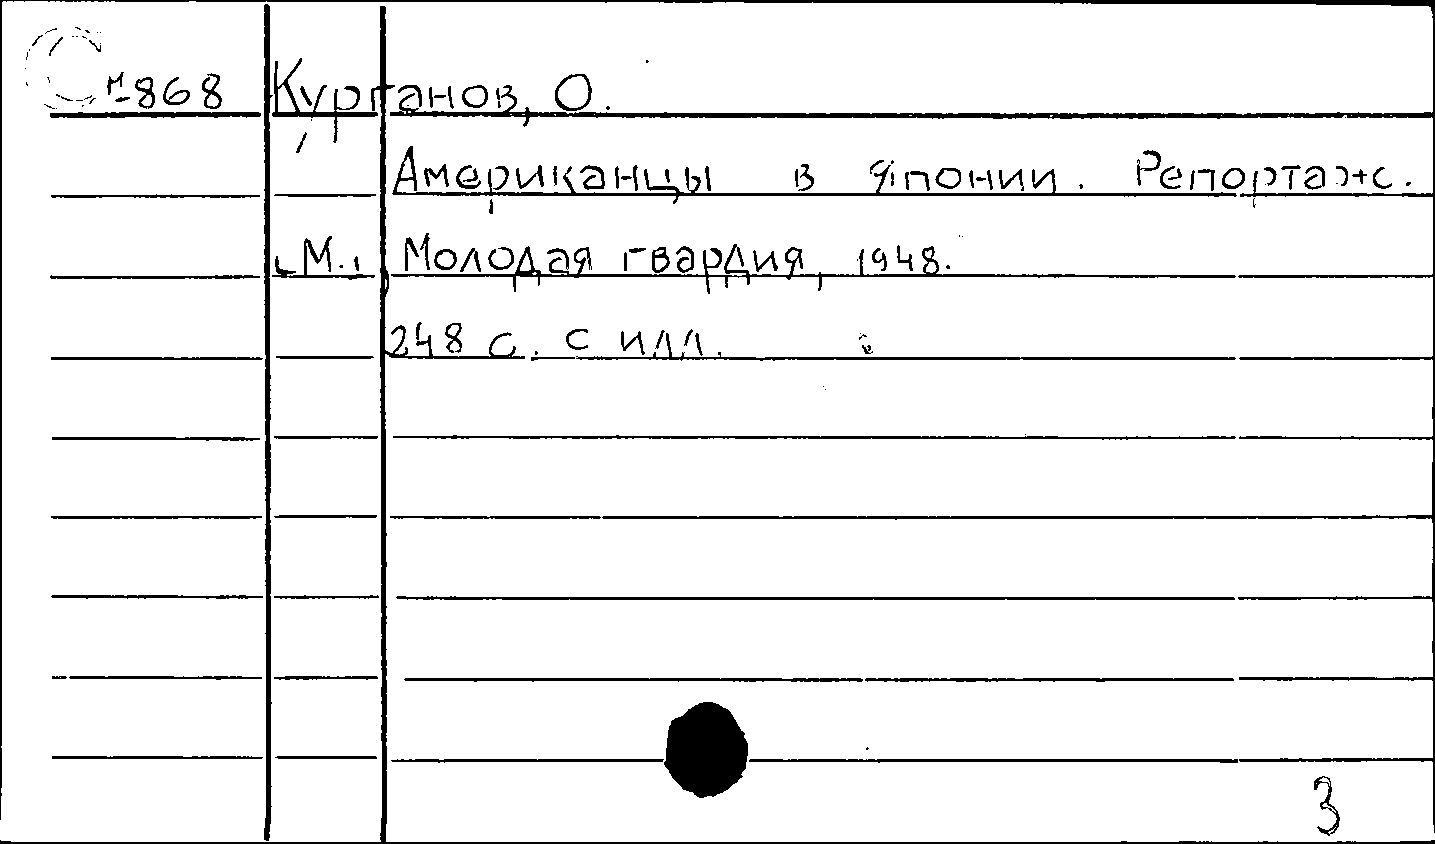 С м-868 Курганов, О.
Американцы в Японии. Репортаж.
М., Молодая гвардия, 1948.
248 с. с илл.
3